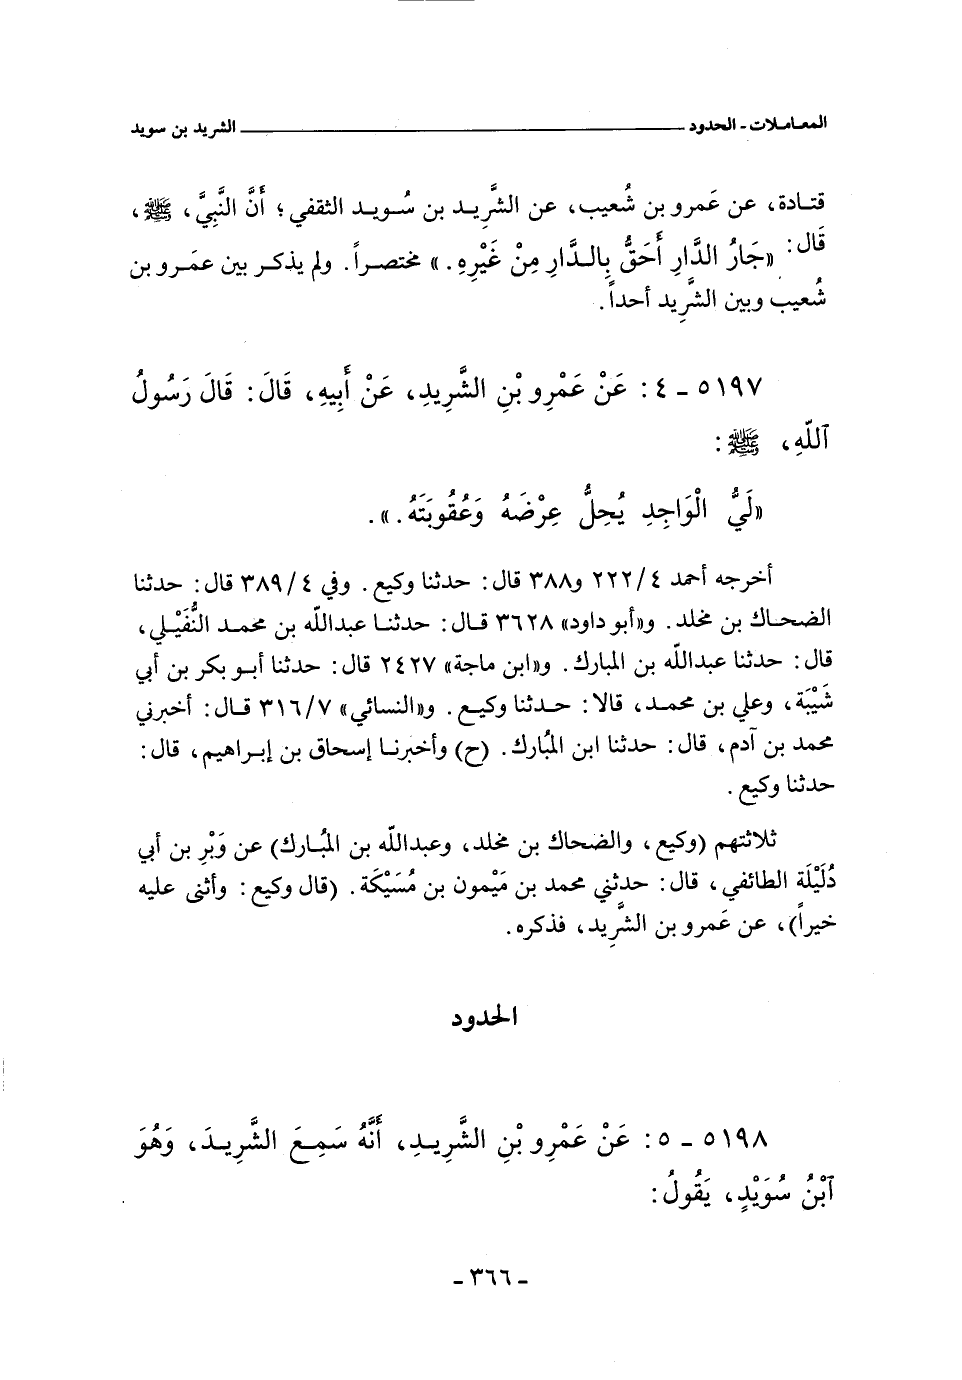 المعاملات - الحدود ــــــــــــ الشريد بن سويد
قتادة، عن عَمرو بن شُعيب، عن الشَّرِيد بن سُويد الثقفي؛ أَنَّ النَّبِيَّ، ﷺ،
قَال: «جَارُ الدَّارِ أَحَقُّ بِالدَّارِ مِنْ غَيْرِهِ.» مختصراً. ولم يذكر بين عمَرو بن
شُعيب وبين الشَّرِيد أحداً.
٥١٩٧ - ٤: عَنْ عَمْرِو بْنِ الشَّرِيدِ، عَنْ أَبِيهِ، قَالَ: قَالَ رَسُولُ
ٱللّهِ، ﷺ:
«لَيُّ الْوَاجِدِ يُحِلُّ عِرْضَهُ وَعُقُوبَتَهُ.».
أخرجه أحمد ٤/ ٢٢٢ و٣٨٨ قال: حدثنا وكيع. وفي ٤/ ٣٨٩ قال: حدثنا
الضحاك بن مخلد. و«أبو داود» ٣٦٢٨ قال: حدثنا عبدالله بن محمد النُّفَيْلي،
قال: حدثنا عبدالله بن المبارك. و«ابن ماجة» ٢٤٢٧ قال: حدثنا أبو بكر بن أبي
شَيْبَة، وعلي بن محمد، قالا: حدثنا وكيع. و«النسائي» ٣١٦/٧ قال: أخبرني
محمد بن آدم، قال: حدثنا ابن المُبارك. (ح) وأخبرنا إسحاق بن إبراهيم، قال:
حدثنا وكيع.
ثلاثتهم (وكيع، والضحاك بن مخلد، وعبدالله بن المُبارك) عن وَبْرِ بن أبي
دُلَيْلَة الطائفي، قال: حدثني محمد بن مَيْمون بن مُسَيْكَة. (قال وكيع: وأثنى عليه
خيراً)، عن عَمرو بن الشَّرِيد، فذكره.
الحدود
٥١٩٨ - ٥: عَنْ عَمْرِو بْنِ الشَّرِيدِ، أَنَّهُ سَمِعَ الشَّرِيدَ، وَهُوَ
ٱبْنُ سُوَيْدٍ، يَقُولُ:
- ٣٦٦ -